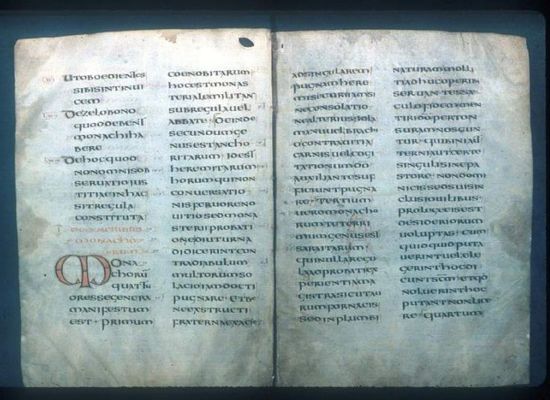 UTOBOEDIENTES
SIBISINTINUI
CEM
DEZELOBONO
QUODDEBENT
MONACHIHA
BERE
DEHOCQUOD
NONOMNISOB
SERUATIOIUS
TITIAEINHAC
SITREGULA
CONSTITUTA
I DEGENERIBUS
MONACHO
RUM
MONA
CHORŪ
QUATTU
ORESSEGENERA
MANIFESTUM
EST · PRIMUM
COENOBITARUM
HOCESTMONAS
TERIALEMILITAN
SUBREGULAUEL
ABBATE DEINDE
SECUNDUMGE
NUSESTANCHO
RITARUMIDEST
HEREMITARUM
HORUMQUINON
CONUERSATIO
NISFERUORENO
UITIOSEDMONA
STERIIPROBATI
ONEDIUTURNA
DIDICERINTCON
TRADIABULUM
MULTORUMSO
LACIOIAMDOCTI
PUGNARE · ETBE
NEEXSTRUCTI
FRATERNAEXACIE
ADSINGULAREM
PUGNAMHERE
MISECURIIAMSI
NECONSOLATIO
NEALTERIUSSOLA
MANUUELBRACHI
OCONTRAUITIA
CARNISUELCOGI
TATIONUMDO
AUXILIANTESUF
FICIUNTPUGNA
RE · TERTIUM
UEROMONACHO
RUMTAETERRI
MUMGENUSEST
SARABITARUM
QUINULLAREGU
LAADPROBATIEX
PERIENTIAMA
GISTRASICUTAU
RUMFORNACIS
SEDINPLUMBI
NATURAMMOLLI
TIADHUCOPERIB
SERUANTESSAE
CULOFIDEMMEN
TIRIDOPERTON
SURAMNOSCUN
TUR · QUIBINIAUT
TERNIAUTCERTE
SINGULISINEPA
STORE · NONDOM
NICISSEDSUISIN
CLUSIOUILIBUS
PROLEGEEISEST
DESIDERIORUM
UOLUPTAS · CUM
QUICQUIDPUTA
UERINTUELELE
GERINTHOCDI
CUNTSCM · ETQD
NOLUERINTHOC
PUTANTNONLICE
RE · QUARTUM